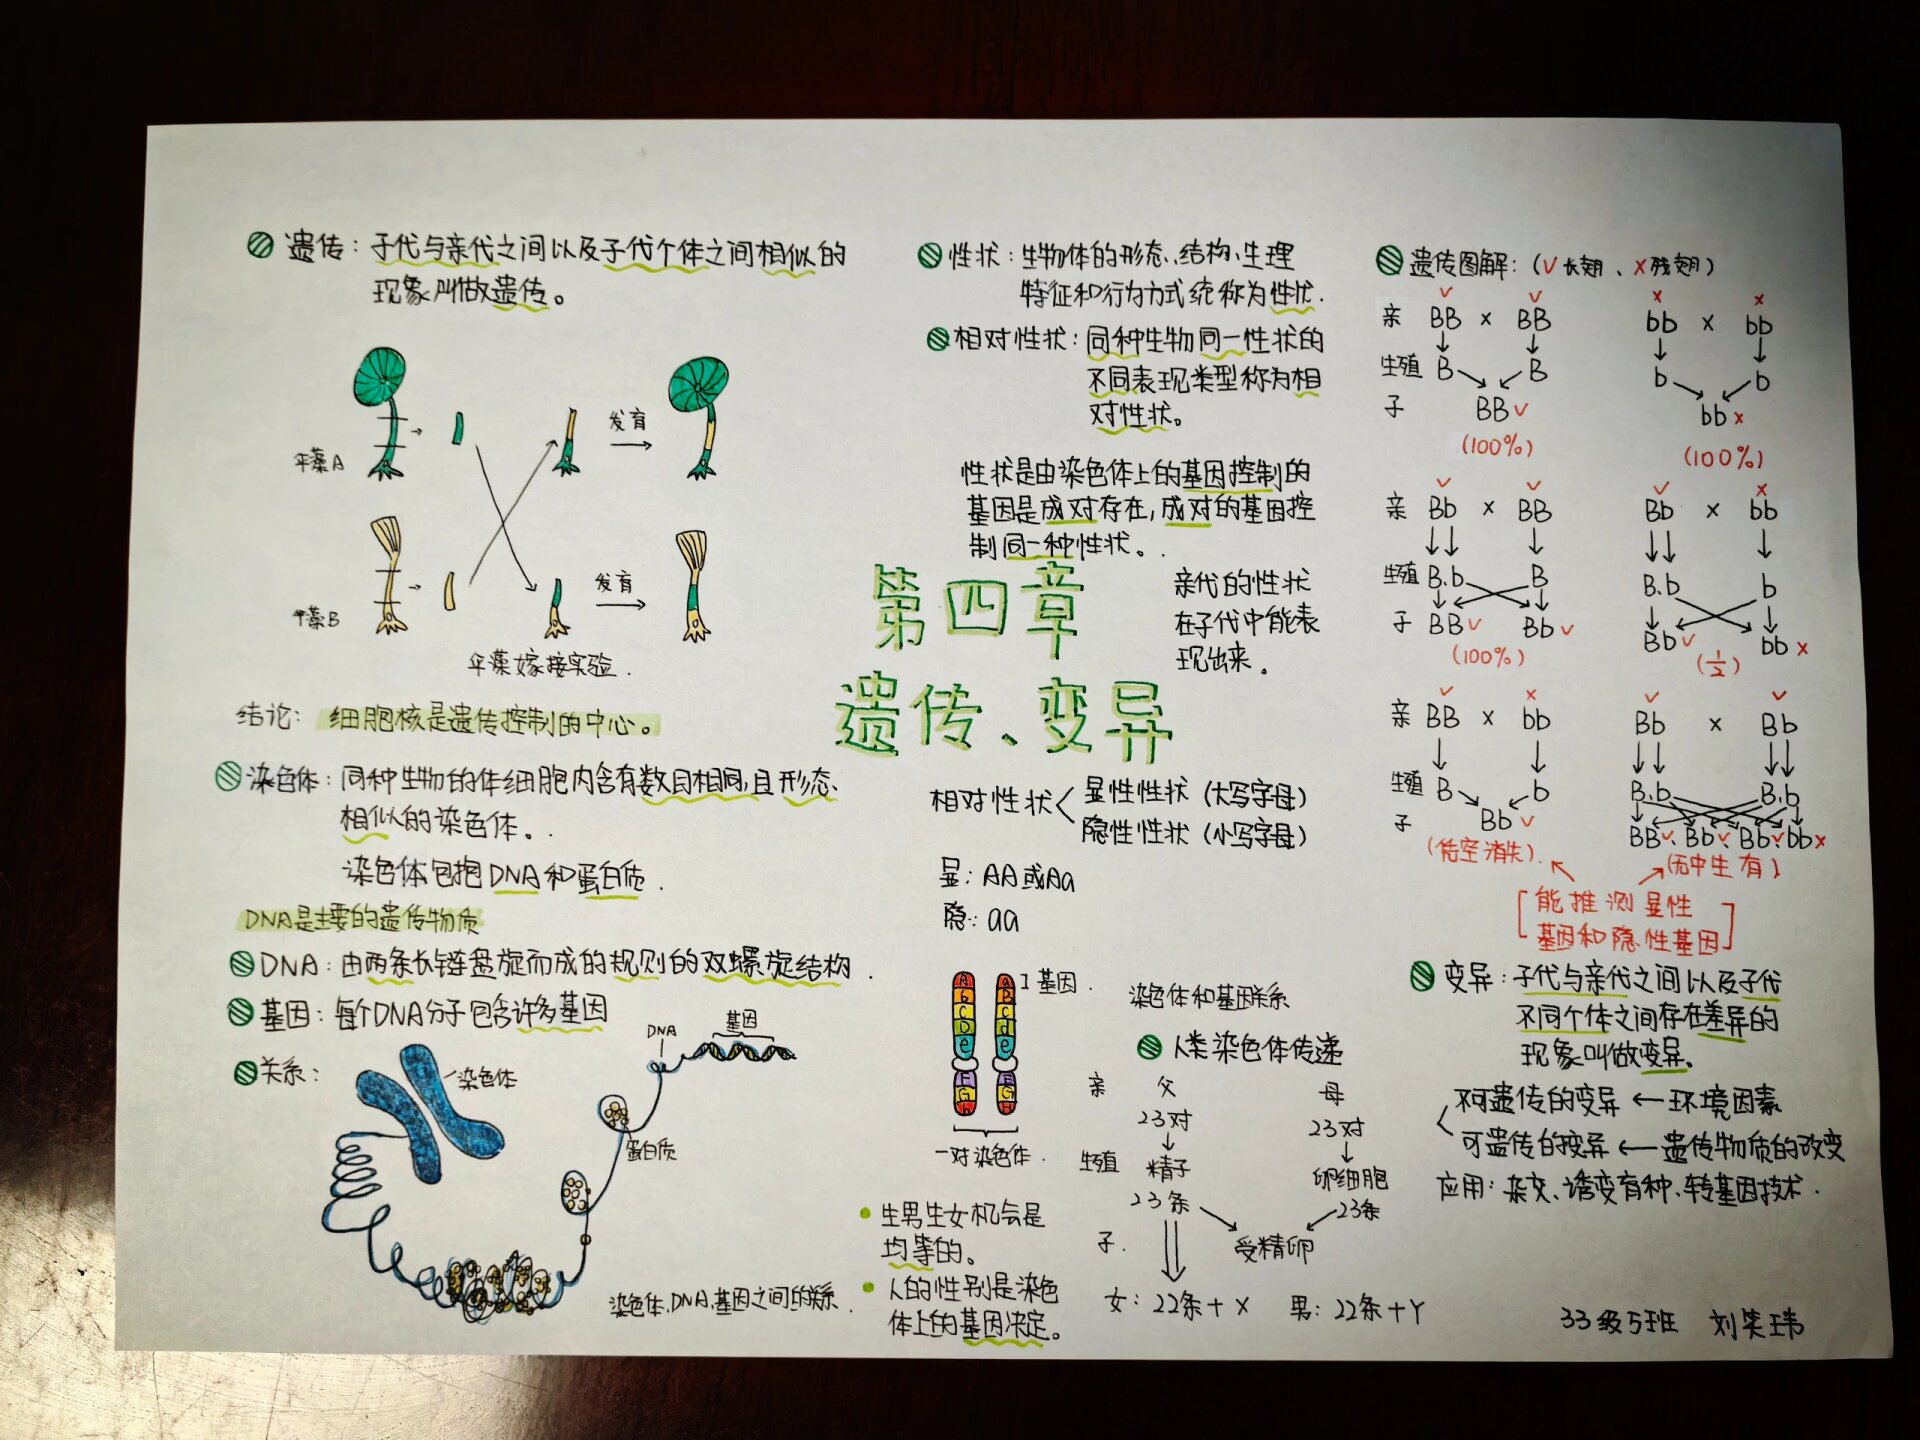 遗传：子代与亲代之间以及子代个体之间相似的
现象叫做遗传。
伞藻A
发育
伞藻B
发育
伞藻嫁接实验.
结论：细胞核是遗传控制的中心。
染色体：同种生物的体细胞内含有数目相同,且形态、
相似的染色体。.
染色体包抱DNA和蛋白质.
DNA是主要的遗传物质
DNA：由两条长链盘旋而成的规则的双螺旋结构.
基因：每个DNA分子包含许多基因
关系：
染色体
DNA
基因
蛋白质
染色体、DNA、基因之间的关系.
性状：生物体的形态、结构、生理
特征和行为方式统称为性状.
相对性状：同种生物同一性状的
不同表现类型称为相
对性状。
性状是由染色体上的基因控制的
基因是成对存在,成对的基因控
制同一种性状。.
亲代的性状
在子代中能表
现出来.
第四章
遗传、变异
相对性状
显性性状（大写字母）
隐性性状（小写字母）
显：AA或Aa
隐：aa
A a
b B
C c
D d
e e
F F
G G
h h
基因.
一对染色体.
染色体和基因关系
人类染色体传递
亲 父 母
23对 23对
生殖 精子 卵细胞
23条 23条
子. 受精卵
女：22条+X 男：22条+Y
生男生女机会是
均等的。
人的性别是染色
体上的基因决定。
遗传图解：(√长翅、×残翅)
√ √ × ×
亲 BB × BB bb × bb
生殖 B B b b
子 BB√ bb×
(100%) (100%)
√ √ √ ×
亲 Bb × BB Bb × bb
生殖 B.b B B.b b
子 BB√ Bb√ Bb√ bb×
(100%) (1/2)
√ × √ √
亲 BB × bb Bb × Bb
生殖 B b B.b B.b
子 Bb√ BB√ Bb√ Bb√ bb×
(凭空消失). (无中生有)
[能推测显性
基因和隐性基因]
变异：子代与亲代之间以及子代
不同个体之间存在差异的
现象叫做变异。
不可遗传的变异←环境因素
可遗传的变异←遗传物质的改变
应用：杂交、诱变育种、转基因技术.
33级5班 刘笑玮